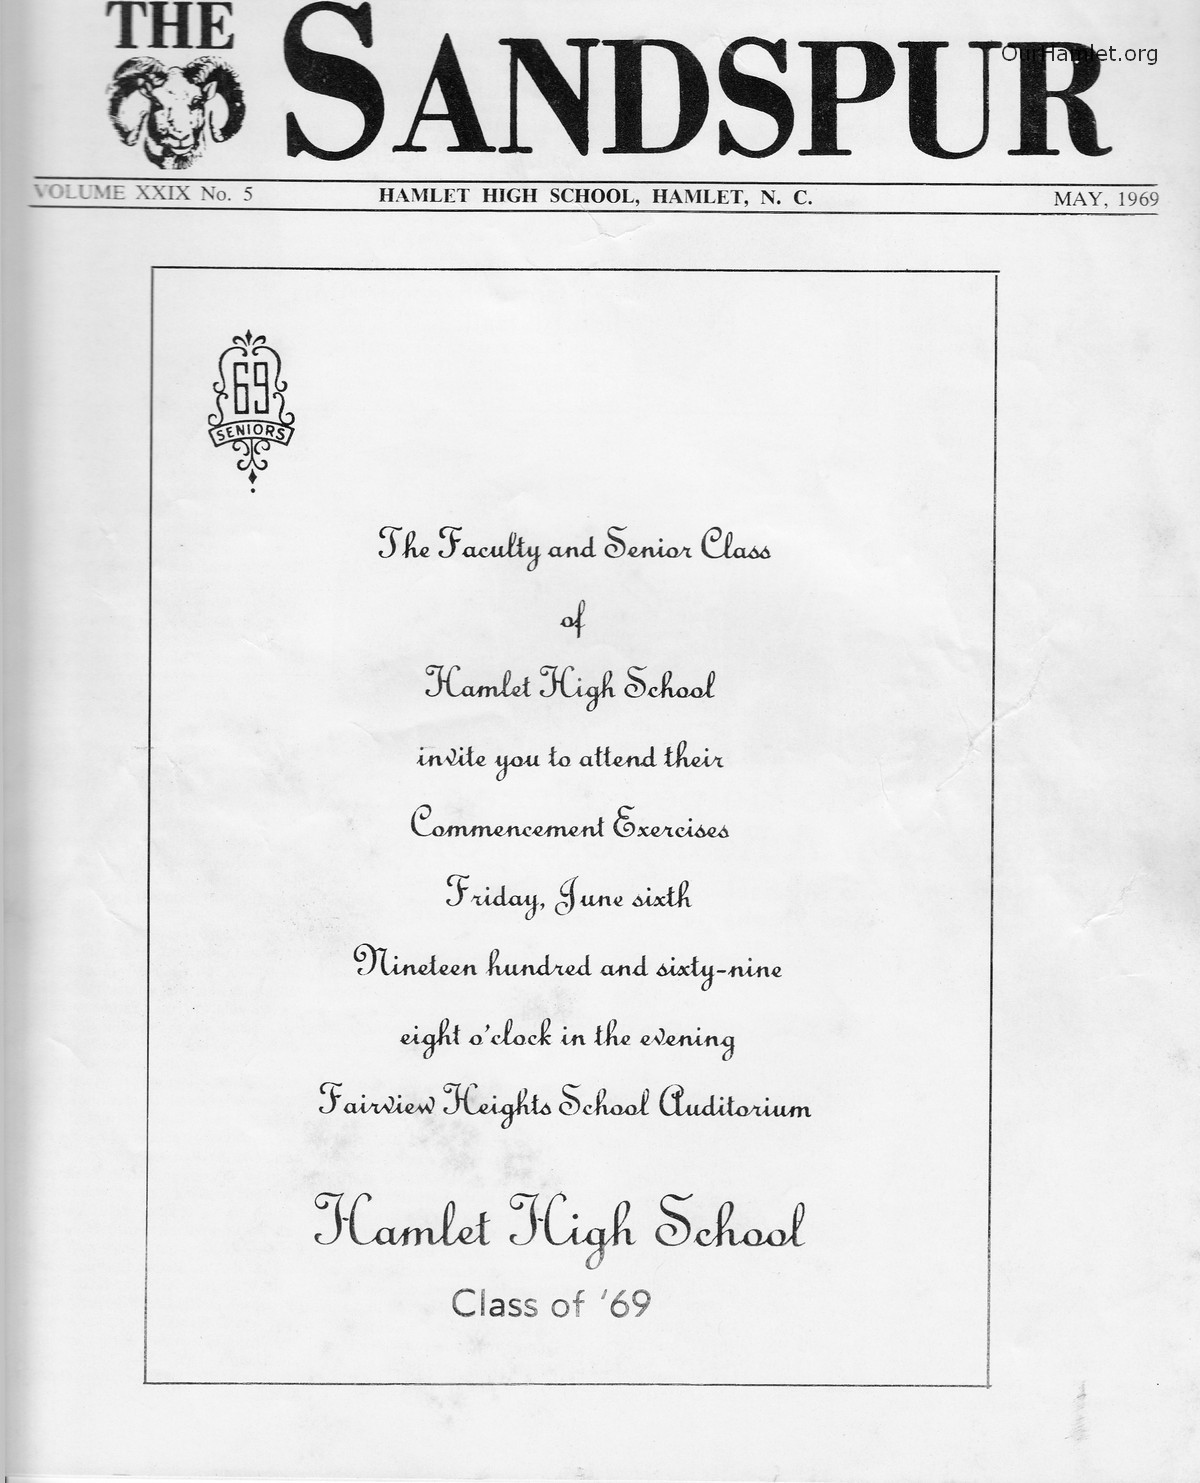 THE SANDSPUR
OurHamlet.org
VOLUME XXIX No. 5 HAMLET HIGH SCHOOL, HAMLET, N. C. MAY, 1969
69
SENIORS
The Faculty and Senior Class
of
Hamlet High School
invite you to attend their
Commencement Exercises
Friday, June sixth
Nineteen hundred and sixty-nine
eight o'clock in the evening
Fairview Heights School Auditorium
Hamlet High School
Class of '69